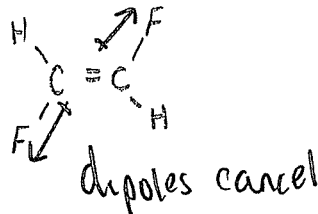 H F
C = C
F H
dipoles cancel